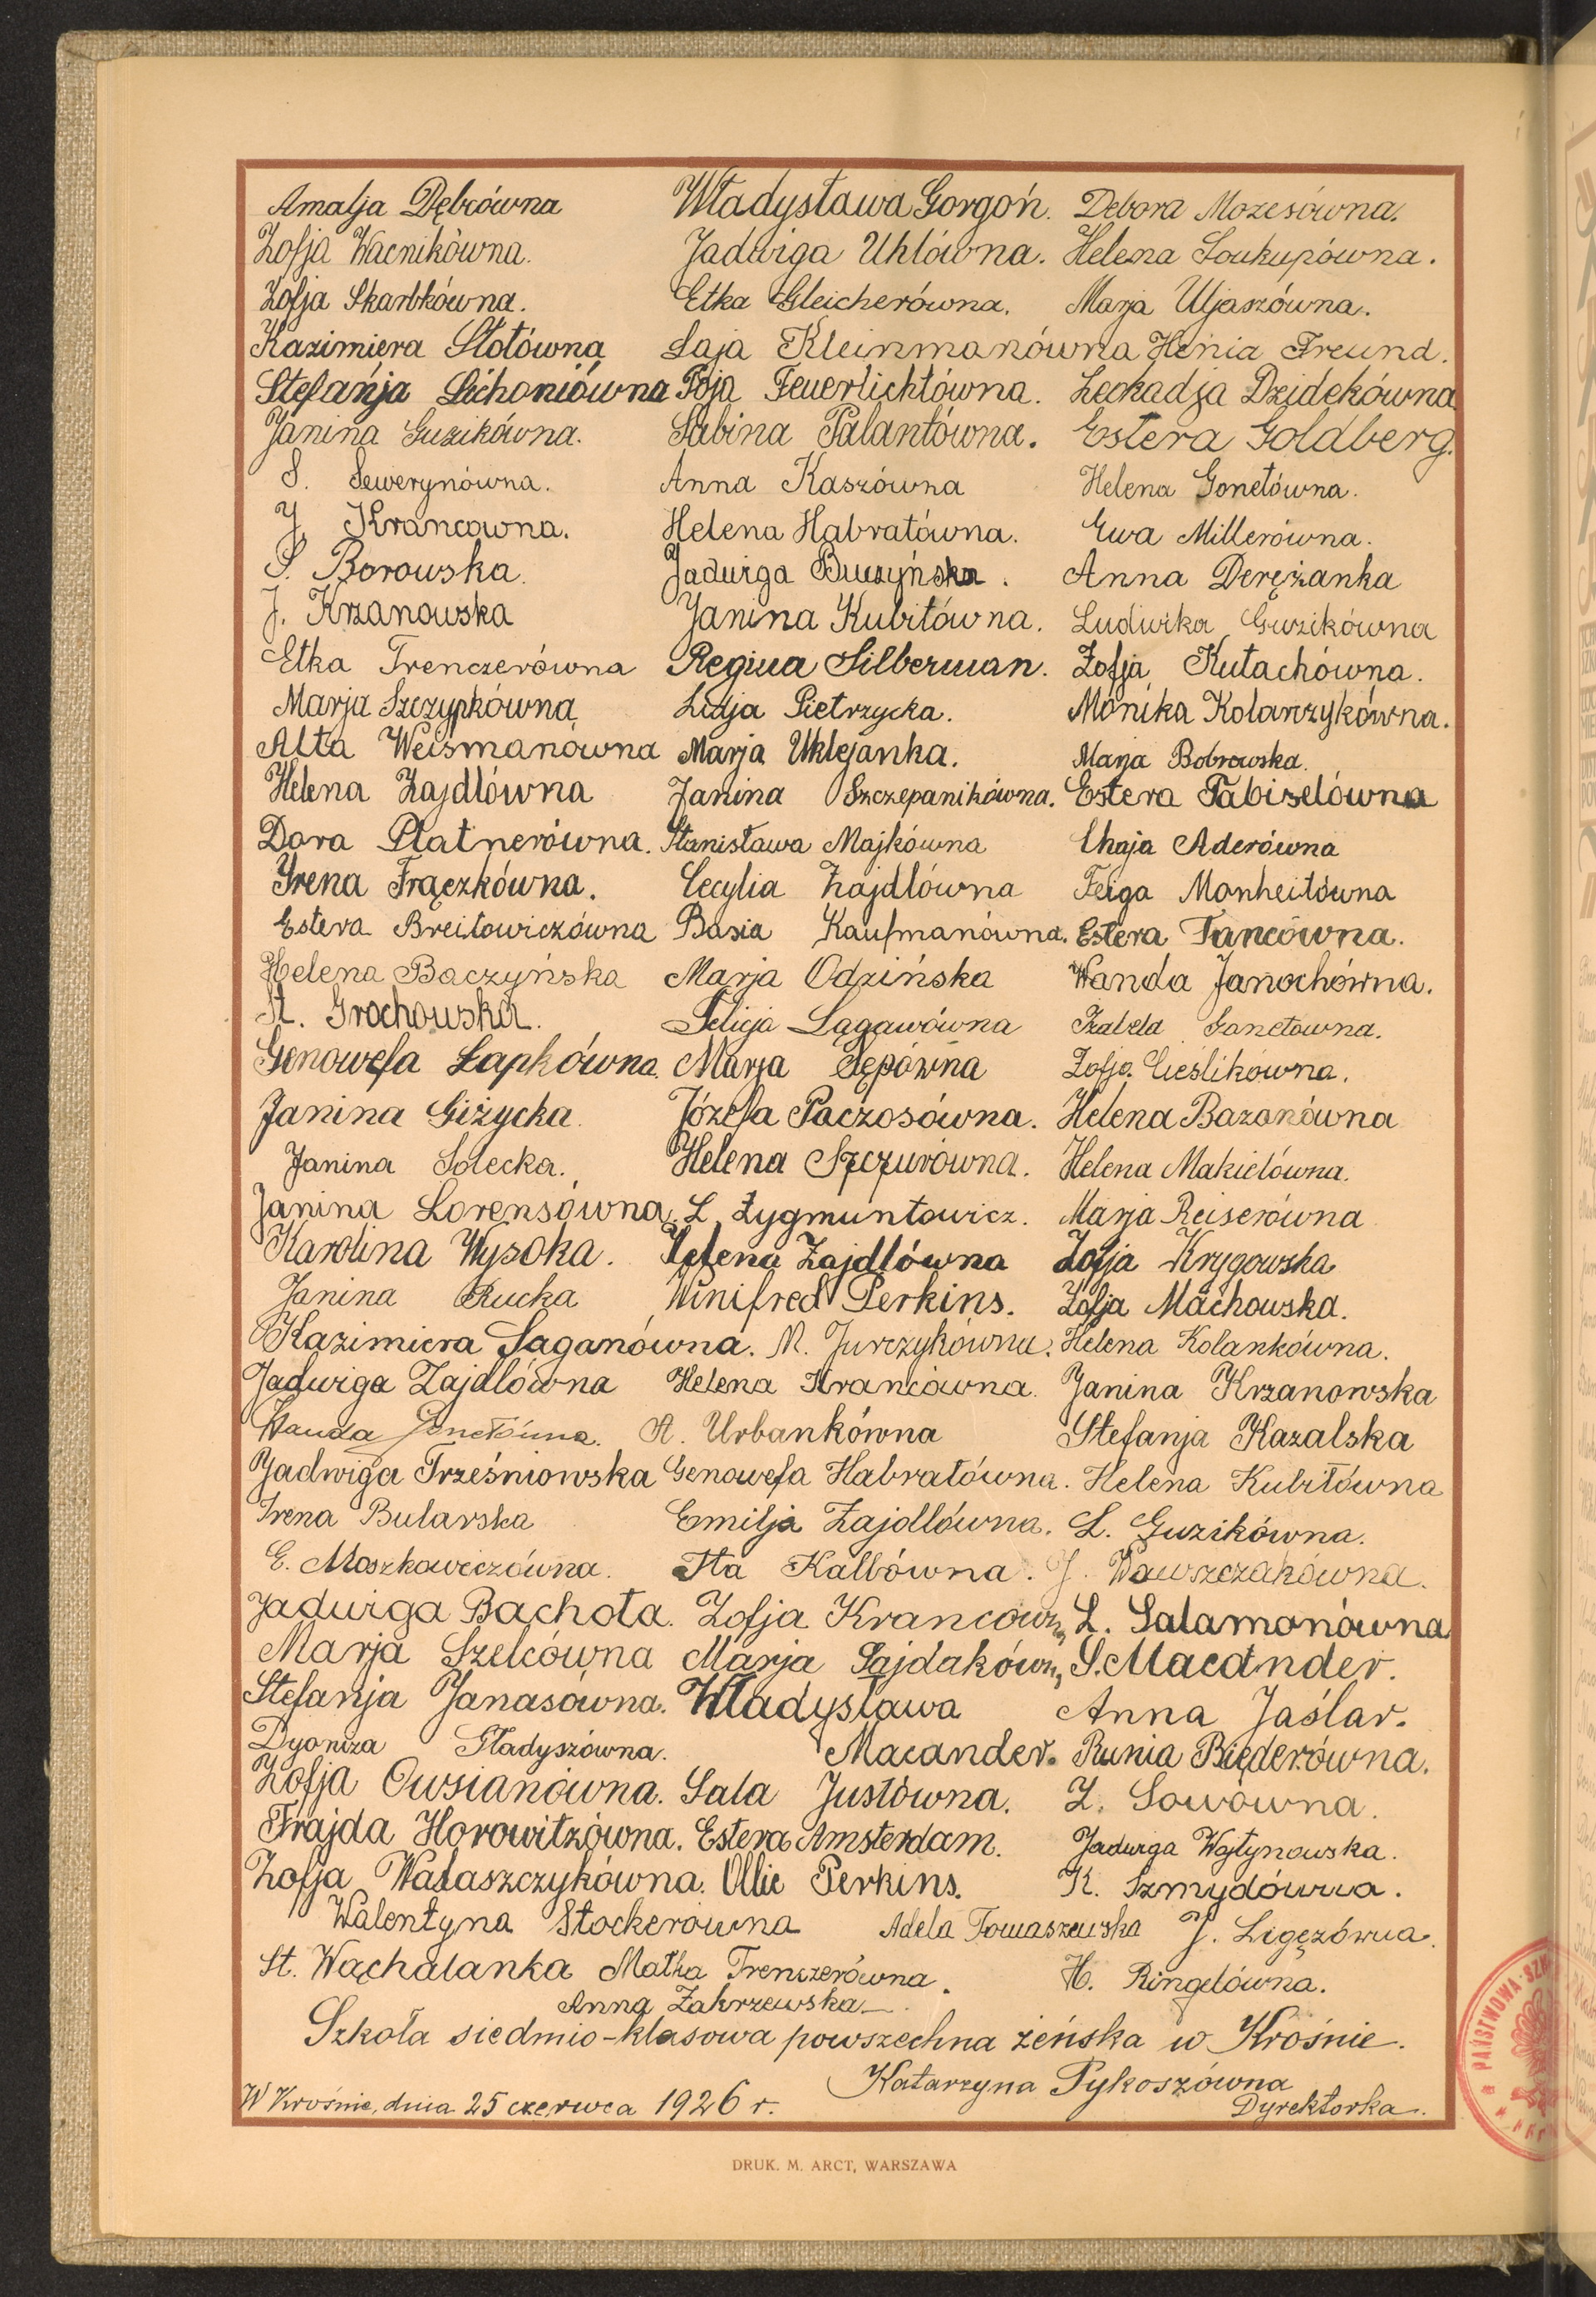 Amalja Dębcówna Władysława Gorgoń. Debora Mozesówna.
Zofja Wacnikówna. Jadwiga Uhlówna. Helena Soukupówna.
Zofja Skarbkówna. Etka Gleicherówna. Marja Uljaszówna.
Kazimiera Słotówna Łaja Kleinmanówna Henia Freund.
Stefanja Lichoniówna Foja Feuerlichtówna. Leokadja Dzidekówna
Janina Guzikówna. Sabina Palantówna. Estera Goldberg.
S. Sewerynówna. Anna Kaszówna Helena Gonetówna.
J. Krancowna. Helena Habratówna. Ewa Millerówna.
S. Borowska. Jadwiga Buczyńska. Anna Dereżanka
J. Krzanowska Janina Kubitówna. Ludwika Guzikówna
Etka Trenczerówna Regina Silberman. Zofja Kutachówna.
Marja Szczypkówna Lidja Pietrzycka. Monika Kolarzykówna.
Alta Weismanówna Marja Uklejanka. Marja Bobrowska.
Helena Zajdlówna Janina Szczepanikówna. Estera Tabiselówna
Dora Platnerówna. Stanisława Majkówna Chaja Aderówna
Irena Frączkówna. Cecylia Zajdlówna Feiga Monheitówna
Estera Breitowiczówna Basia Kaufmanówna. Estera Tancówna.
Helena Baczyńska Marja Odzińska Wanda Janochówna.
St. Grochowska. Felicja Łagawówna Izabela Gonetówna.
Genowefa Łapkówna. Marja Sępówna Zofja Cieślikówna.
Janina Giżycka. Józefa Paczosówna. Helena Bazanówna
Janina Solecka. Helena Szczurówna. Helena Makielówna.
Janina Lorensówna. L. Zygmuntowicz. Marja Reiserówna
Karolina Wysoka. Helena Zajdlówna Zofja Krygowska
Janina Rucka Winifred Perkins. Zofja Machowska.
Kazimiera Saganówna. M. Jurczykówna. Helena Kolankówna.
Jadwiga Zajdlówna Helena Krancówna. Janina Krzanowska
Wanda Gonetówna. A. Urbankówna Stefanja Kazalska
Jadwiga Trześniowska Genowefa Habratówna. Helena Kubitówna
Irena Bularska Emilja Zajdlówna. L. Guzikówna.
E. Moszkowiczówna. Ita Kalbówna. J. Wawszczakówna.
Jadwiga Bachota. Zofja Krancówna L. Salamonówna
Marja Szelcówna Marja Sajdakówna S. Macander.
Stefanja Janasówna. Władysława Anna Jaślar.
Dyoniza Gładyszówna. Macander. Runia Biederówna.
Zofja Owsianówna. Sala Justówna. Z. Sowówna.
Frajda Horowitzówna. Estera Amsterdam. Jadwiga Wojtynowska.
Zofja Wałaszczykówna. Ollie Perkins. K. Szmydówna.
Walentyna Stockerówna Adela Tomaszewska J. Ligęzówna.
St. Wąchalanka Matka Trenczerówna. H. Ringelówna.
Anna Zakrzewska
Szkoła siedmio-klasowa powszechna żeńska w Krośnie.
Katarzyna Pykoszówna
W Krośnie, dnia 25 czerwca 1926 r. Dyrektorka.
DRUK. M. ARCT, WARSZAWA
PAŃSTWOWA